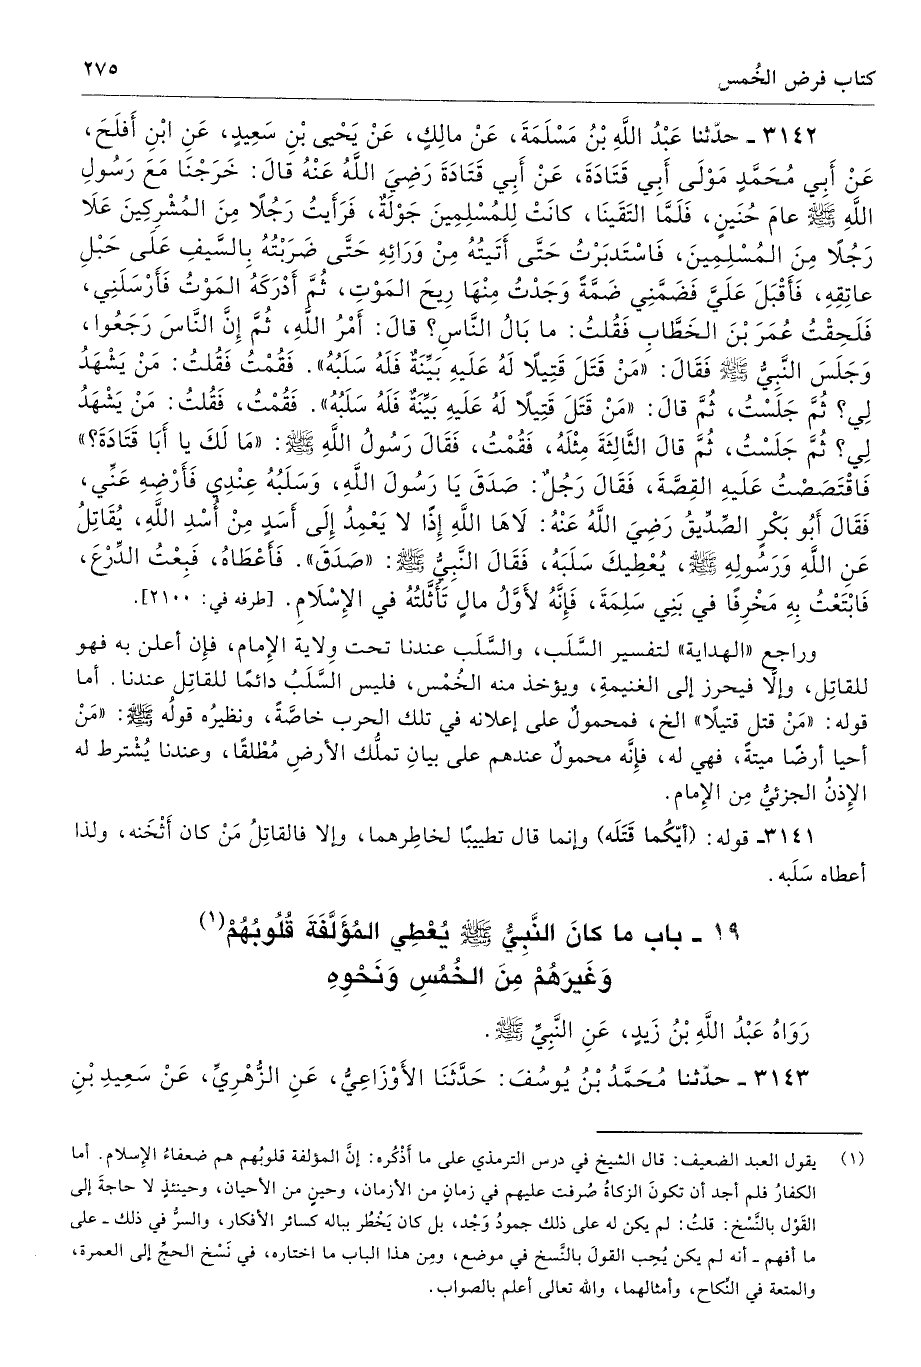 كتاب فرض الخُمس
٢٧٥
٣١٤٢ ـ حدّثنا عَبْدُ اللَّهِ بْنُ مَسْلَمَةَ، عَنْ مالِكٍ، عَنْ يَحْيى بْنِ سَعِيدٍ، عَنِ ابْنِ أَفلَحَ،
عَنْ أَبي مُحَمَّدٍ مَوْلَى أَبِي قَتَادَةَ، عَنْ أَبِي قَتَادَةَ رَضِيَ اللَّهُ عَنْهُ قالَ: خَرَجْنَا مَعَ رَسُولِ
اللَّهِ ﷺ عامَ حُنَينٍ، فَلَمَّا التَقَينَا، كانَتْ لِلمُسْلِمِينَ جَوْلَةٌ، فَرَأَيتُ رَجُلًا مِنَ المُشْرِكِينَ عَلَا
رَجُلًا مِنَ المُسْلِمِينَ، فَاسْتَدبَرْتُ حَتَّى أَتَيتُهُ مِنْ وَرَائِهِ حَتَّى ضَرَبْتُهُ بِالسَّيفِ عَلَى حَبْلِ
عاتِقِهِ، فَأَقْبَلَ عَلَيَّ فَضَمَّنِي ضَمَّةً وَجَدْتُ مِنْهَا رِيحَ المَوْتِ، ثُمَّ أَدْرَكَهُ المَوْتُ فَأَرْسَلَنِي،
فَلَحِقْتُ عُمَرَ بْنَ الخَطَّابِ فَقُلتُ: ما بَالُ النَّاسِ؟ قالَ: أَمْرُ اللَّهِ، ثُمَّ إِنَّ النَّاسَ رَجَعُوا،
وَجَلَسَ النَّبِيُّ ﷺ فَقَالَ: «مَنْ قَتَلَ قَتِيلًا لَهُ عَلَيهِ بَيِّنَةٌ فَلَهُ سَلَبُهُ». فَقُمْتُ فَقُلتُ: مَنْ يَشْهَدُ
لِي؟ ثُمَّ جَلَسْتُ، ثُمَّ قالَ: «مَنْ قَتَلَ قَتِيلًا لَهُ عَلَيهِ بَيِّنَةٌ فَلَهُ سَلَبُهُ». فَقُمْتُ، فَقُلتُ: مَنْ يَشْهَدُ
لِي؟ ثُمَّ جَلَسْتُ، ثُمَّ قالَ الثَّالِثَةَ مِثْلَهُ، فَقُمْتُ، فَقَالَ رَسُولُ اللَّهِ ﷺ: «مَا لَكَ يا أَبَا قَتَادَةَ؟»
فَاقْتَصَصْتُ عَلَيهِ القِصَّةَ، فَقَالَ رَجُلٌ: صَدَقَ يَا رَسُولَ اللَّهِ، وَسَلَبُهُ عِنْدِي فَأَرْضِهِ عَنِّي،
فَقَالَ أَبُو بَكْرٍ الصِّدِّيقُ رَضِيَ اللَّهُ عَنْهُ: لَاهَا اللَّهِ إِذًا لا يَعْمِدُ إِلَى أَسَدٍ مِنْ أُسْدِ اللَّهِ، يُقَاتِلُ
عَنِ اللَّهِ وَرَسُولِهِ ﷺ، يُعْطِيكَ سَلَبَهُ، فَقَالَ النَّبِيُّ ﷺ: «صَدَقَ». فَأَعْطَاهُ، فَبِعْتُ الدِّرْعَ،
فَابْتَعْتُ بِهِ مَخْرِفًا في بَنِي سَلِمَةَ، فَإِنَّهُ لأَوَّلُ مالٍ تَأَثَّلتُهُ في الإِسْلَامِ. [طرفه في: ٢١٠٠].
وراجع «الهداية» لتفسير السَّلَب، والسَّلَب عندنا تحت وِلاية الإِمام، فإِن أعلن به فهو
للقاتِل، وإلَّا فيحرز إلى الغنيمةِ، ويؤخذ منه الخُمْس، فليس السَّلَبُ دائمًا للقاتِل عندنا. أما
قوله: «مَنْ قتل قتيلًا» الخ، فمحمولٌ على إعلانه في تلك الحرب خاصَّةً، ونظيرُه قولُه ﷺ: «مَنْ
أحيا أرضًا ميتةً، فهي له، فإنَّه محمول عندهم على بيانِ تملُّك الأرضِ مُطْلقًا، وعندنا يُشْترط له
الإِذنُ الجزئيُّ مِن الإِمام.
٣١٤١ـ قوله: (أيّكما قَتَلَه) وإنما قال تطييبًا لخاطِرهما، وإلا فالقاتِلُ مَنْ كان أَثْخَنه، ولذا
أعطاه سَلَبه.
١٩ ـ باب ما كانَ النَّبِيُّ ﷺ يُعْطِي المُؤَلَّفَةَ قُلُوبُهُمْ(١)
وَغَيرَهُمْ مِنَ الخُمُسِ وَنَحْوِهِ
رَوَاهُ عَبْدُ اللَّهِ بْنُ زَيدٍ، عَنِ النَّبِيِّ ﷺ.
٣١٤٣ ـ حدّثنا مُحَمَّدُ بْنُ يُوسُفَ: حَدَّثَنَا الأَوْزَاعِيُّ، عَنِ الزُّهْرِيِّ، عَنْ سَعِيدِ بْنِ
(١) يقول العبد الضعيف: قال الشيخ في درس الترمذي على ما أَذْكُره: إنَّ المؤلفة قلوبُهم هم ضعفاءُ الإِسلام. أما
الكفارُ فلم أجد أن تكونَ الزكاةُ صُرفت عليهم في زمانٍ من الأزمان، وحينٍ من الأحيان، وحينئذٍ لا حاجةَ إلى
القَوْل بالنَّسْخ: قلتُ: لم يكن له على ذلك جمودُ وَجْد، بل كان يَخْطُر بباله كسائر الأفكار، والسرُّ في ذلك ـ على
ما أفهم ـ أنه لم يكن يُحِب القولَ بالنَّسخ في موضع، ومِن هذا الباب ما اختاره، في نَسْخ الحجِّ إلى العمرة،
والمتعة في النِّكاح، وأمثالهما، والله تعالى أعلم بالصواب.